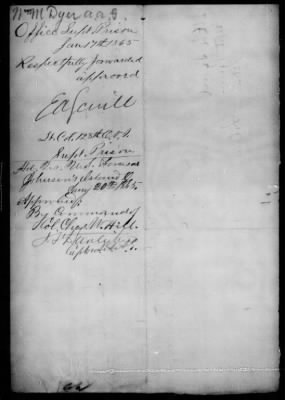 Wm M Dyer a a G
Office Supt Prison
Jan 17th 1865
Respectfully forwarded
approved
E A Scovill
Lt Col 128th O.V.I.
Supt Prison
Hd. Qrs. U.S. Forces
Johnson's Island O
Jany 20th 1865
Approved
By Command of
Col Chas W. Hill